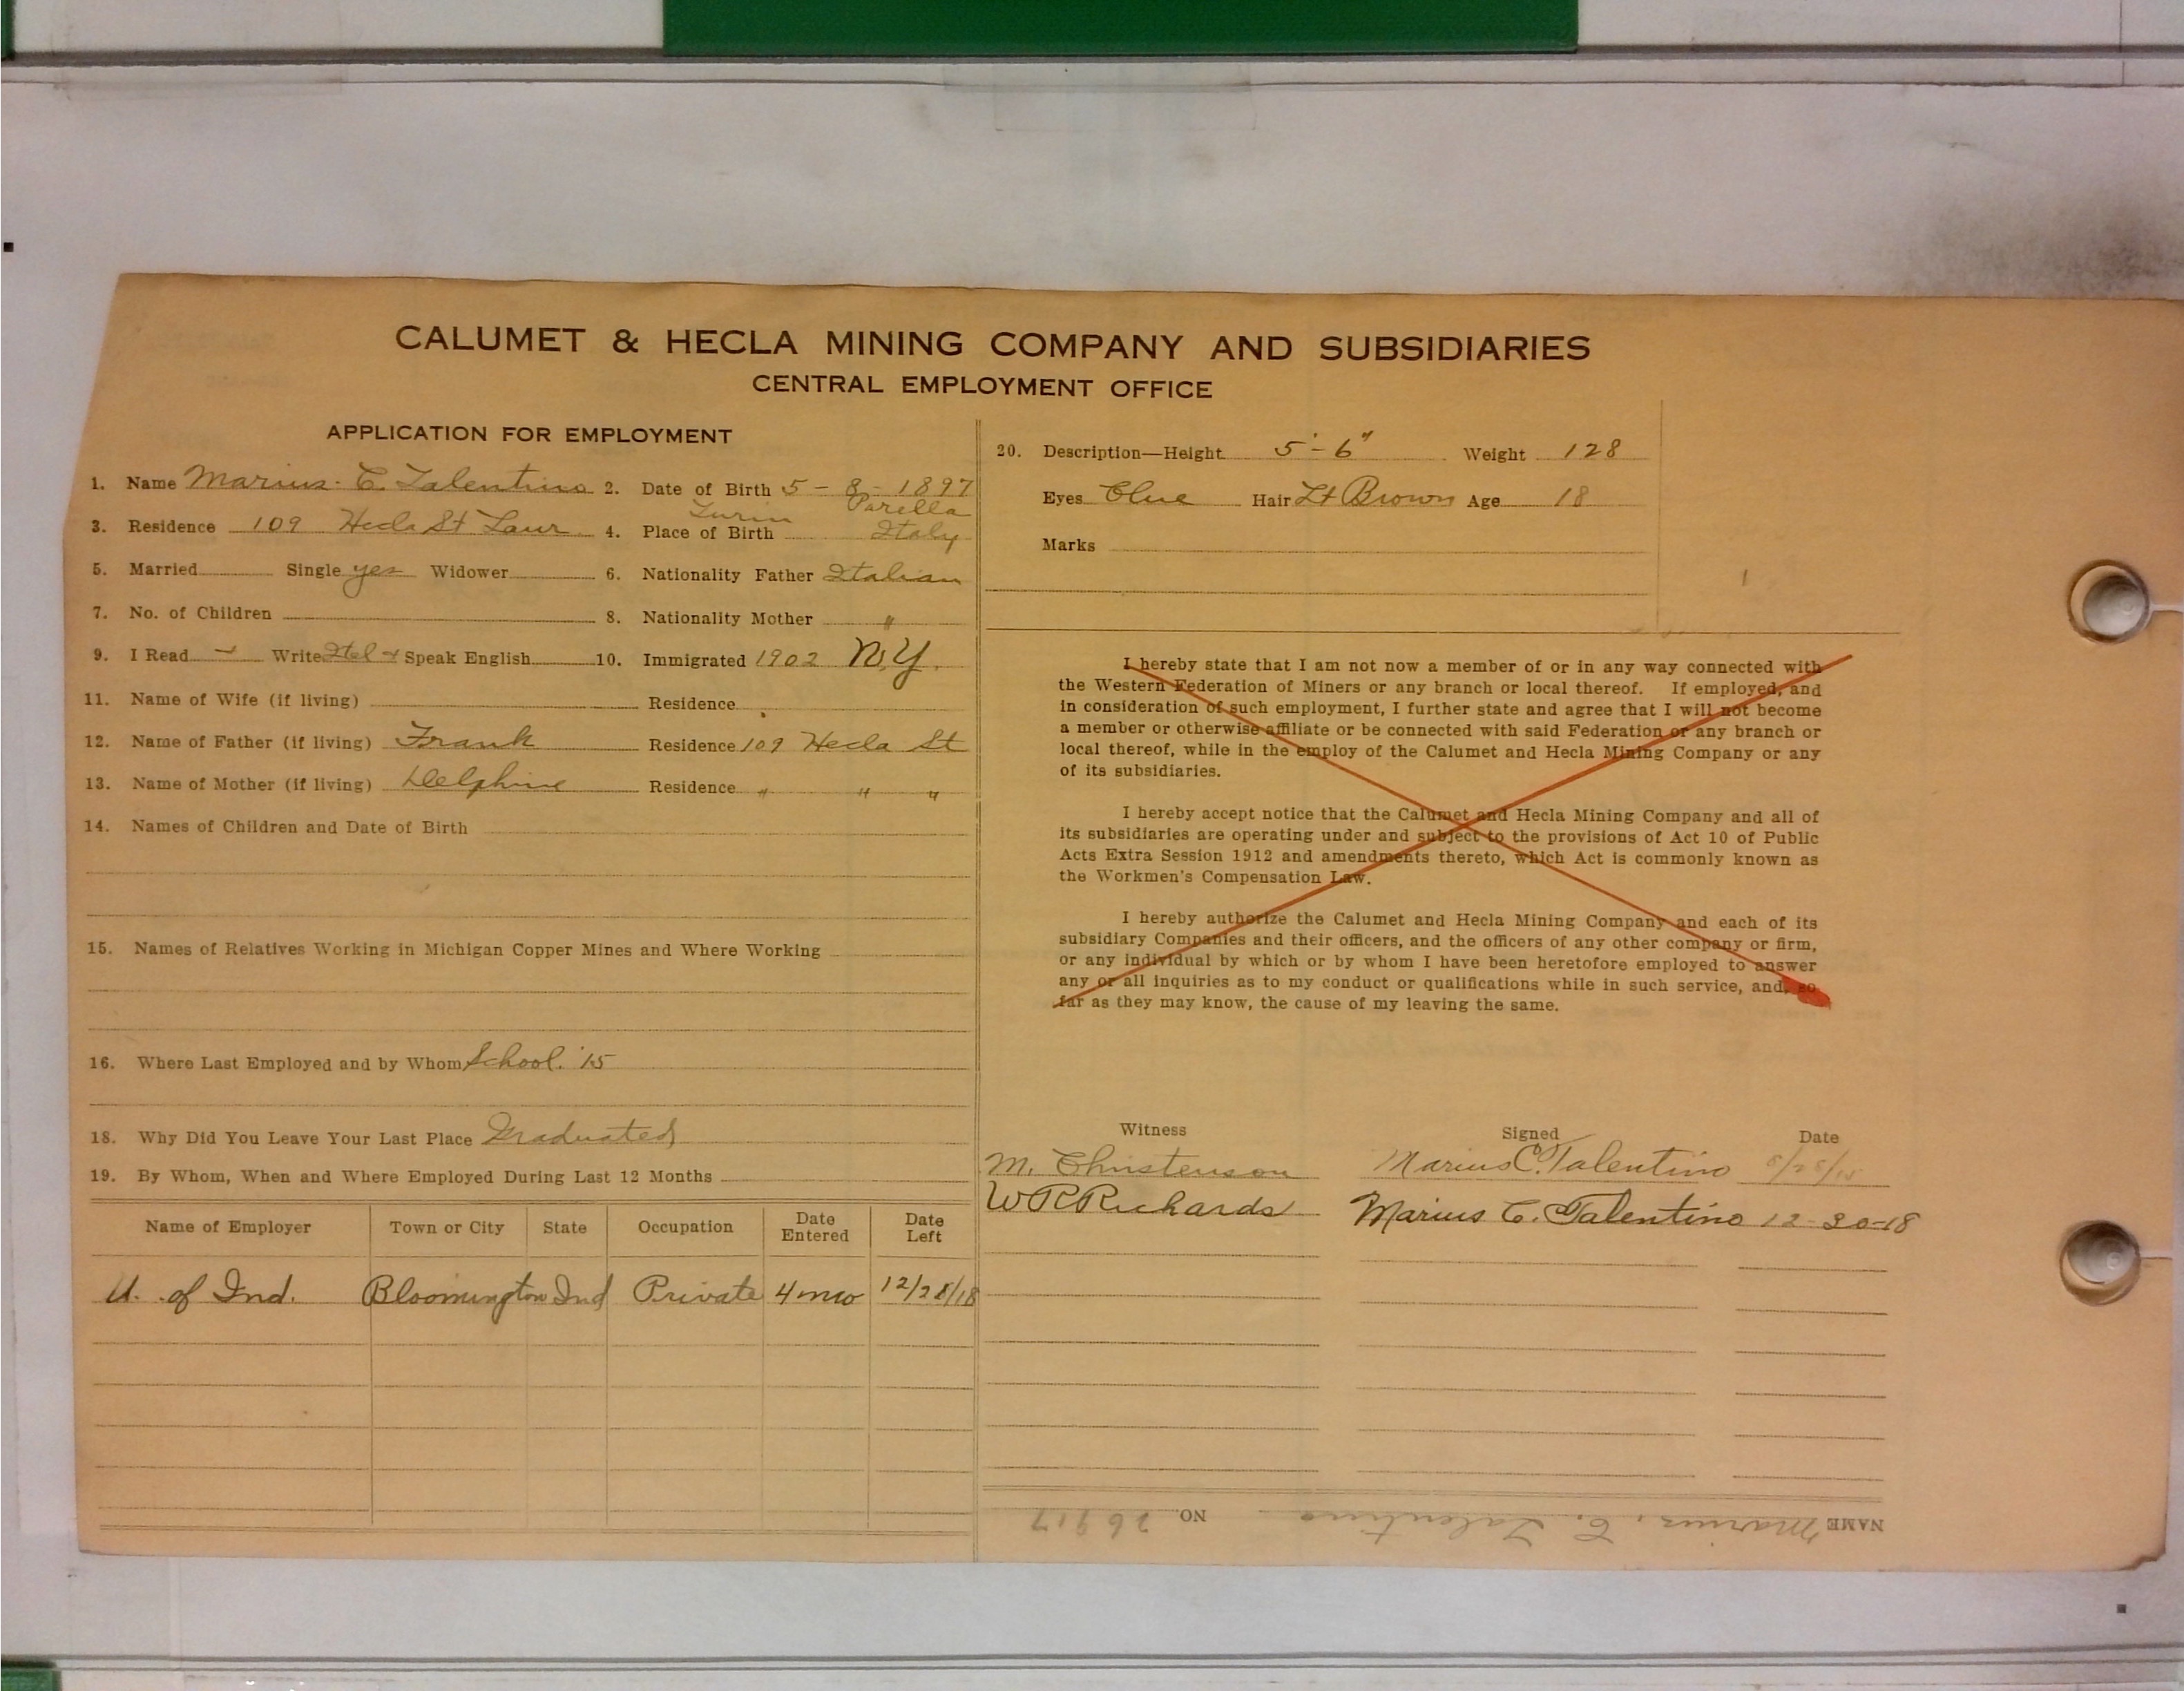 CALUMET & HECLA MINING COMPANY AND SUBSIDIARIES
CENTRAL EMPLOYMENT OFFICE
APPLICATION FOR EMPLOYMENT
1. Name Marius C Talentino 2. Date of Birth 5 - 8 - 1897
Turin Parella
3. Residence 109 Hecla St Laur 4. Place of Birth Italy
5. Married Single yes Widower 6. Nationality Father Italian
7. No. of Children 8. Nationality Mother "
9. I Read Write Speak English 10. Immigrated 1902 N.Y.
11. Name of Wife (if living) Residence
12. Name of Father (if living) Frank Residence 109 Hecla St
13. Name of Mother (if living) Delphine Residence " " "
14. Names of Children and Date of Birth
15. Names of Relatives Working in Michigan Copper Mines and Where Working
16. Where Last Employed and by Whom School. '15
18. Why Did You Leave Your Last Place Graduated
19. By Whom, When and Where Employed During Last 12 Months
Name of Employer Town or City State Occupation Date Entered Date Left
U. of Ind. Bloomington Ind Private 4 mo 12/28/18
20. Description—Height 5'-6" Weight 128
Eyes Blue Hair Lt Brown Age 18
Marks
I hereby state that I am not now a member of or in any way connected with
the Western Federation of Miners or any branch or local thereof. If employed, and
in consideration of such employment, I further state and agree that I will not become
a member or otherwise affiliate or be connected with said Federation or any branch or
local thereof, while in the employ of the Calumet and Hecla Mining Company or any
of its subsidiaries.
I hereby accept notice that the Calumet and Hecla Mining Company and all of
its subsidiaries are operating under and subject to the provisions of Act 10 of Public
Acts Extra Session 1912 and amendments thereto, which Act is commonly known as
the Workmen's Compensation Law.
I hereby authorize the Calumet and Hecla Mining Company and each of its
subsidiary Companies and their officers, and the officers of any other company or firm,
or any individual by which or by whom I have been heretofore employed to answer
any or all inquiries as to my conduct or qualifications while in such service, and, so
far as they may know, the cause of my leaving the same.
Witness Signed Date
M. Christenson Marius C. Talentino
W R Richards Marius C. Talentino 12-30-18
NAME Marius. C. Talentino NO. 26917